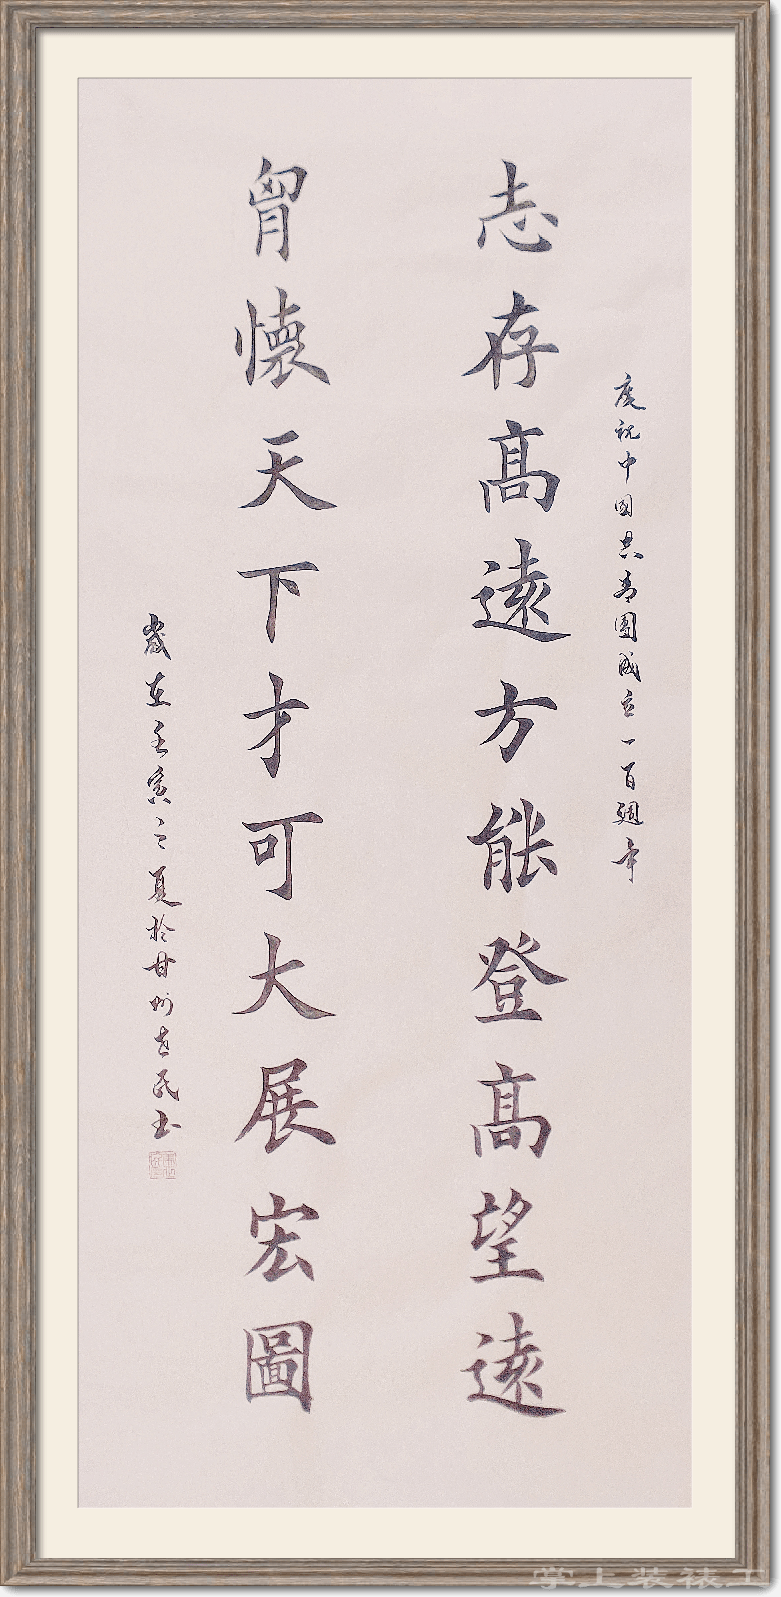 慶祝中国共青團成立一百週年
志存髙遠方能登髙望遠
胷懷天下才可大展宏圖
歲在壬寅之夏於甘州民书
掌上装裱工